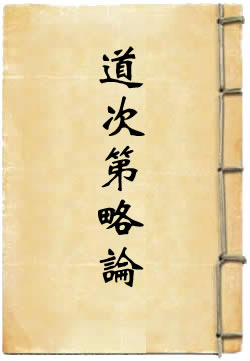 道次第略論